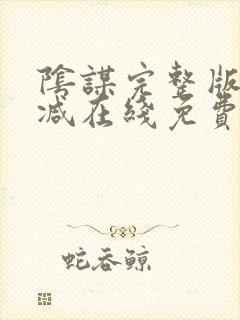 陰謀完整版
減在綫免費
蛇吞鲸